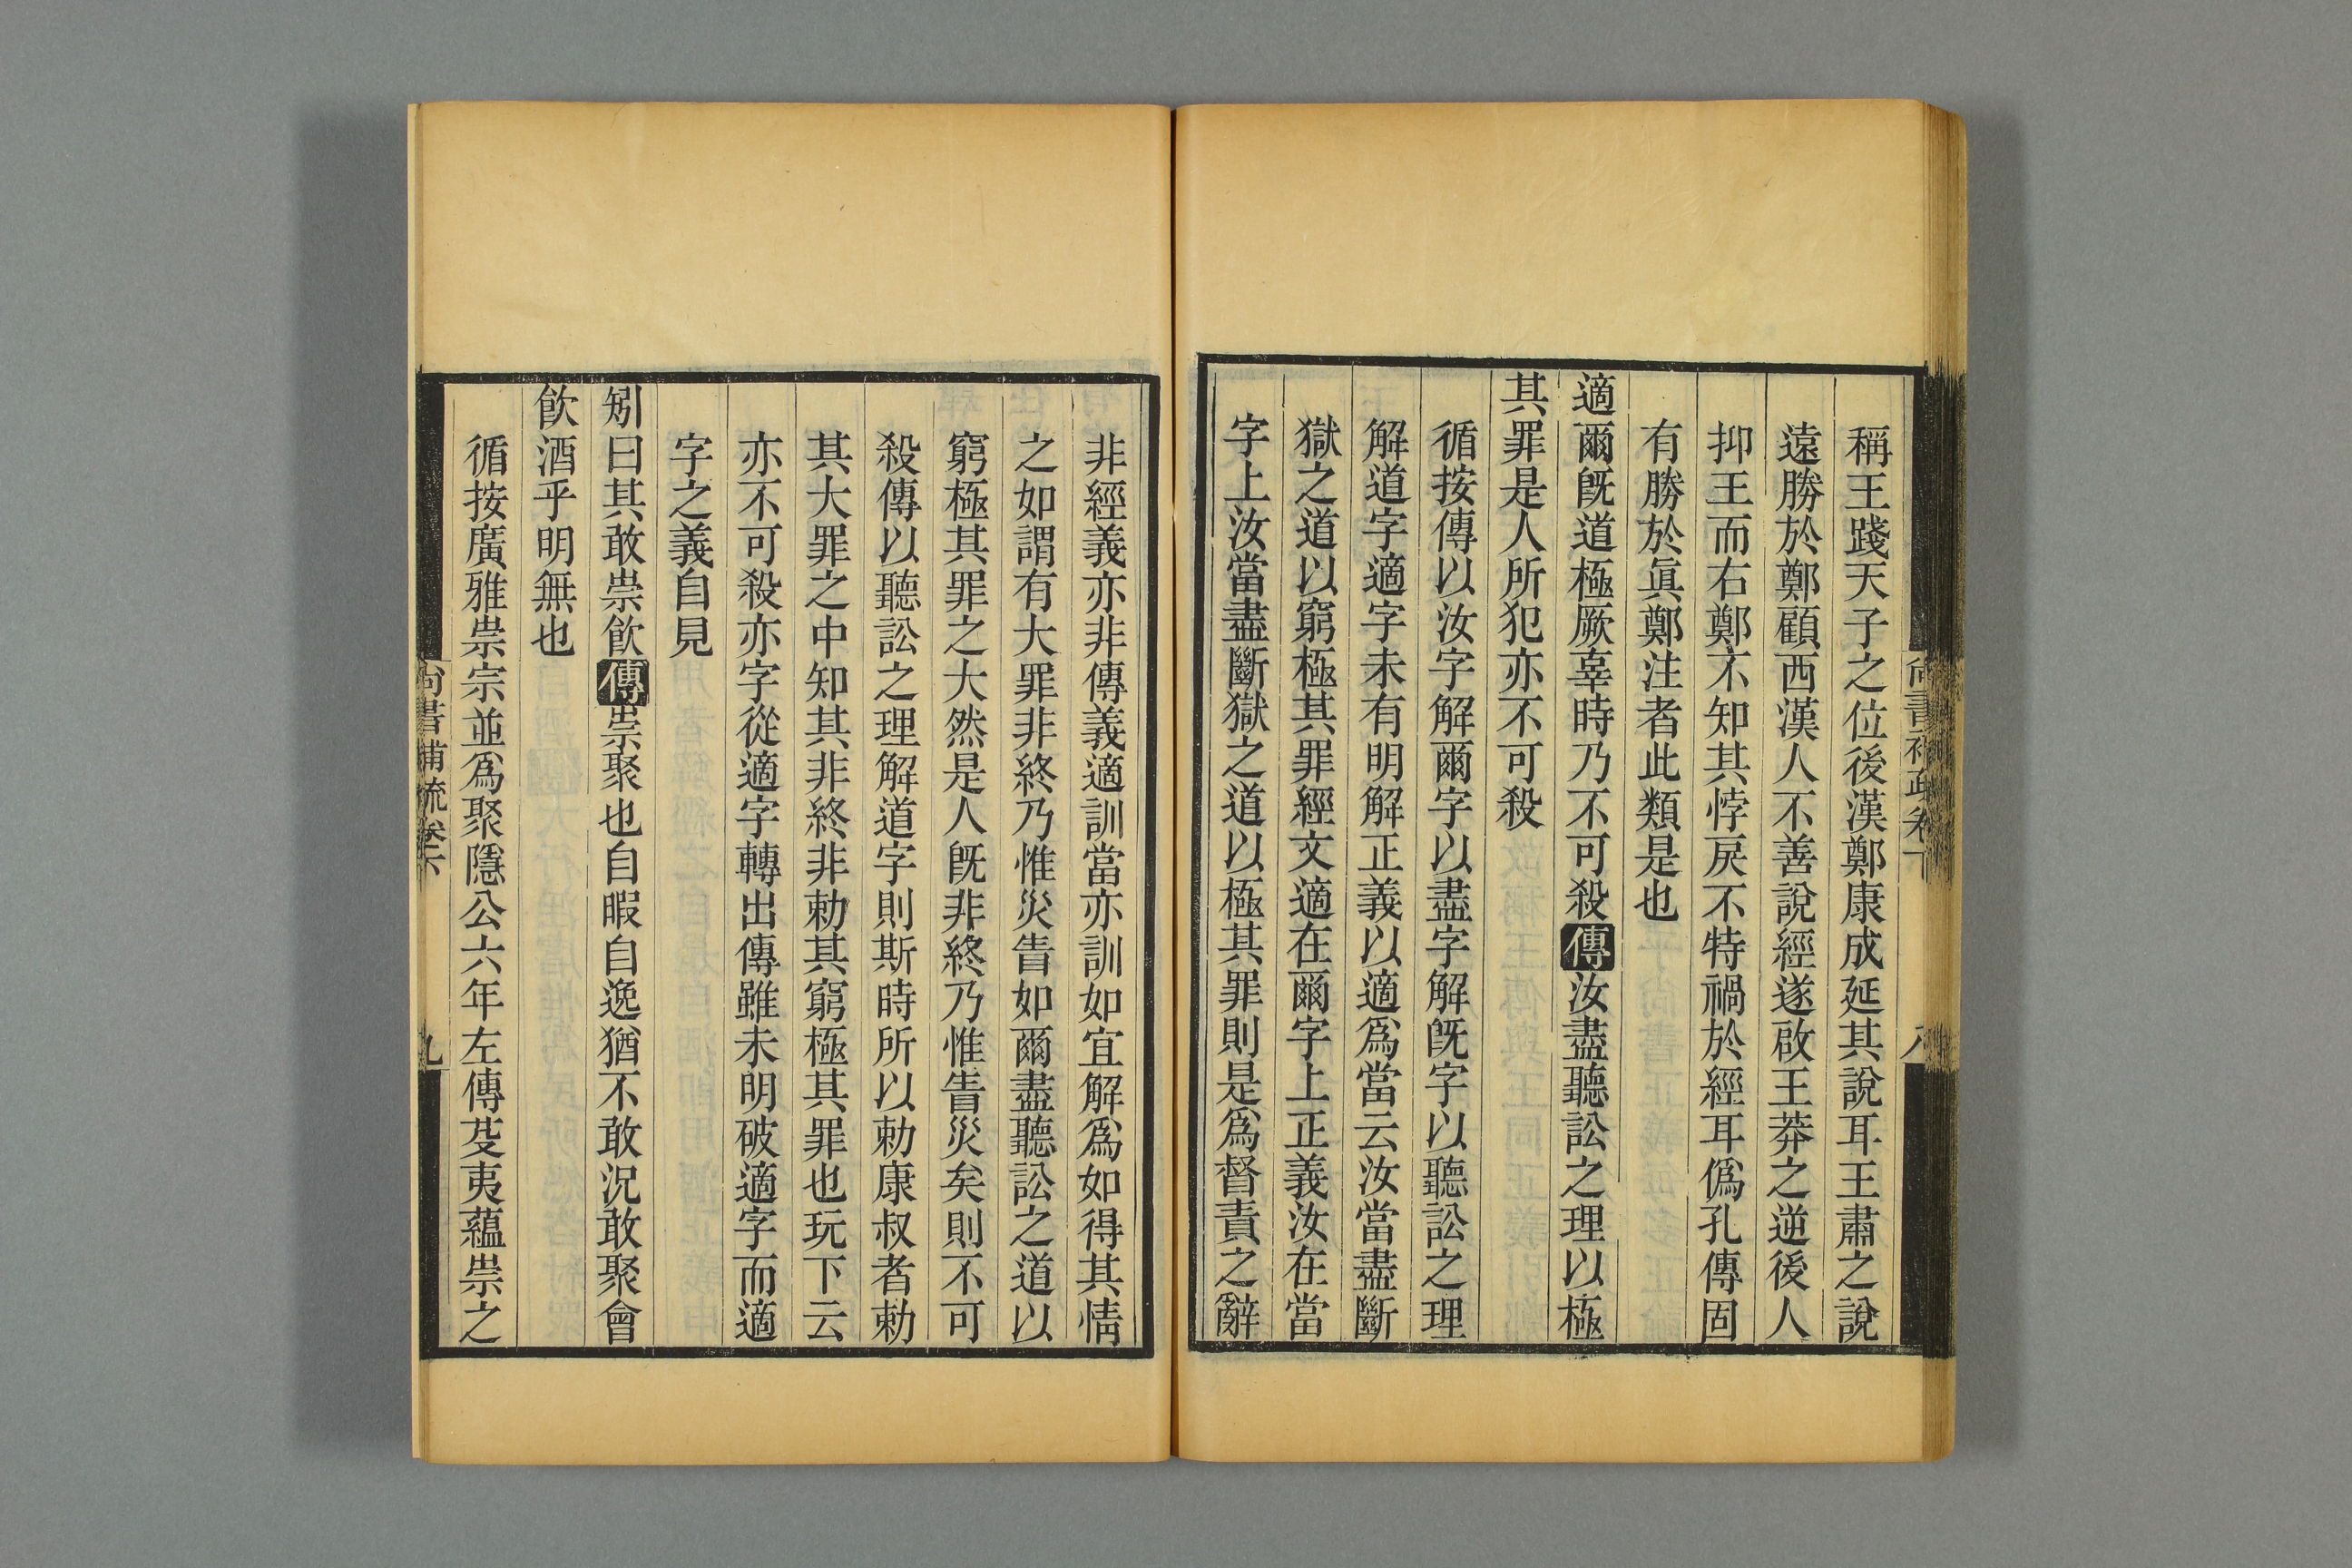 尚書補疏卷下
八
稱王踐天子之位後漢鄭康成延其說耳王肅之說
遠勝於鄭顧西漢人不善說經遂啟王莽之逆後人
抑王而右鄭不知其悖戾不特禍於經耳僞孔傳固
有勝於眞鄭注者此類是也
適爾旣道極厥辜時乃不可殺傳汝盡聽訟之理以極
其罪是人所犯亦不可殺
循按傳以汝字解爾字以盡字解旣字以聽訟之理
解道字適字未有明解正義以適爲當云汝當盡斷
獄之道以窮極其罪經文適在爾字上正義汝在當
字上汝當盡斷獄之道以極其罪則是爲督責之辭
非經義亦非傳義適訓當亦訓如宜解爲如得其情
之如謂有大罪非終乃惟災眚如爾盡聽訟之道以
窮極其罪之大然是人旣非終乃惟眚災矣則不可
殺傳以聽訟之理解道字則斯時所以勅康叔者勅
其大罪之中知其非終非勅其窮極其罪也玩下云
亦不可殺亦字從適字轉出傳雖未明破適字而適
字之義自見
矧曰其敢崇飮傳崇聚也自暇自逸猶不敢況敢聚會
飮酒乎明無也
循按廣雅崇宗並爲聚隱公六年左傳芟夷蘊崇之
尚書補疏卷下
九